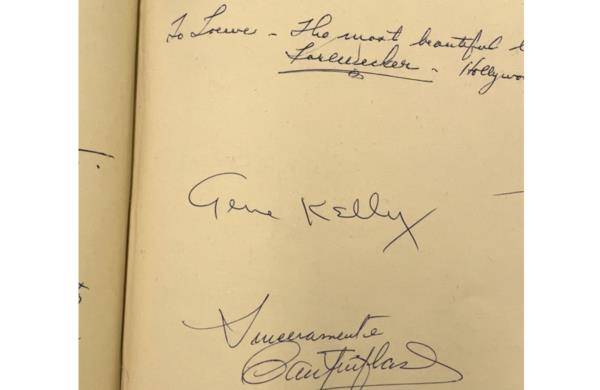 To Loewe - The most beautiful
- Hollywo
Gene Kelly
Sinceramente
Cantinflas